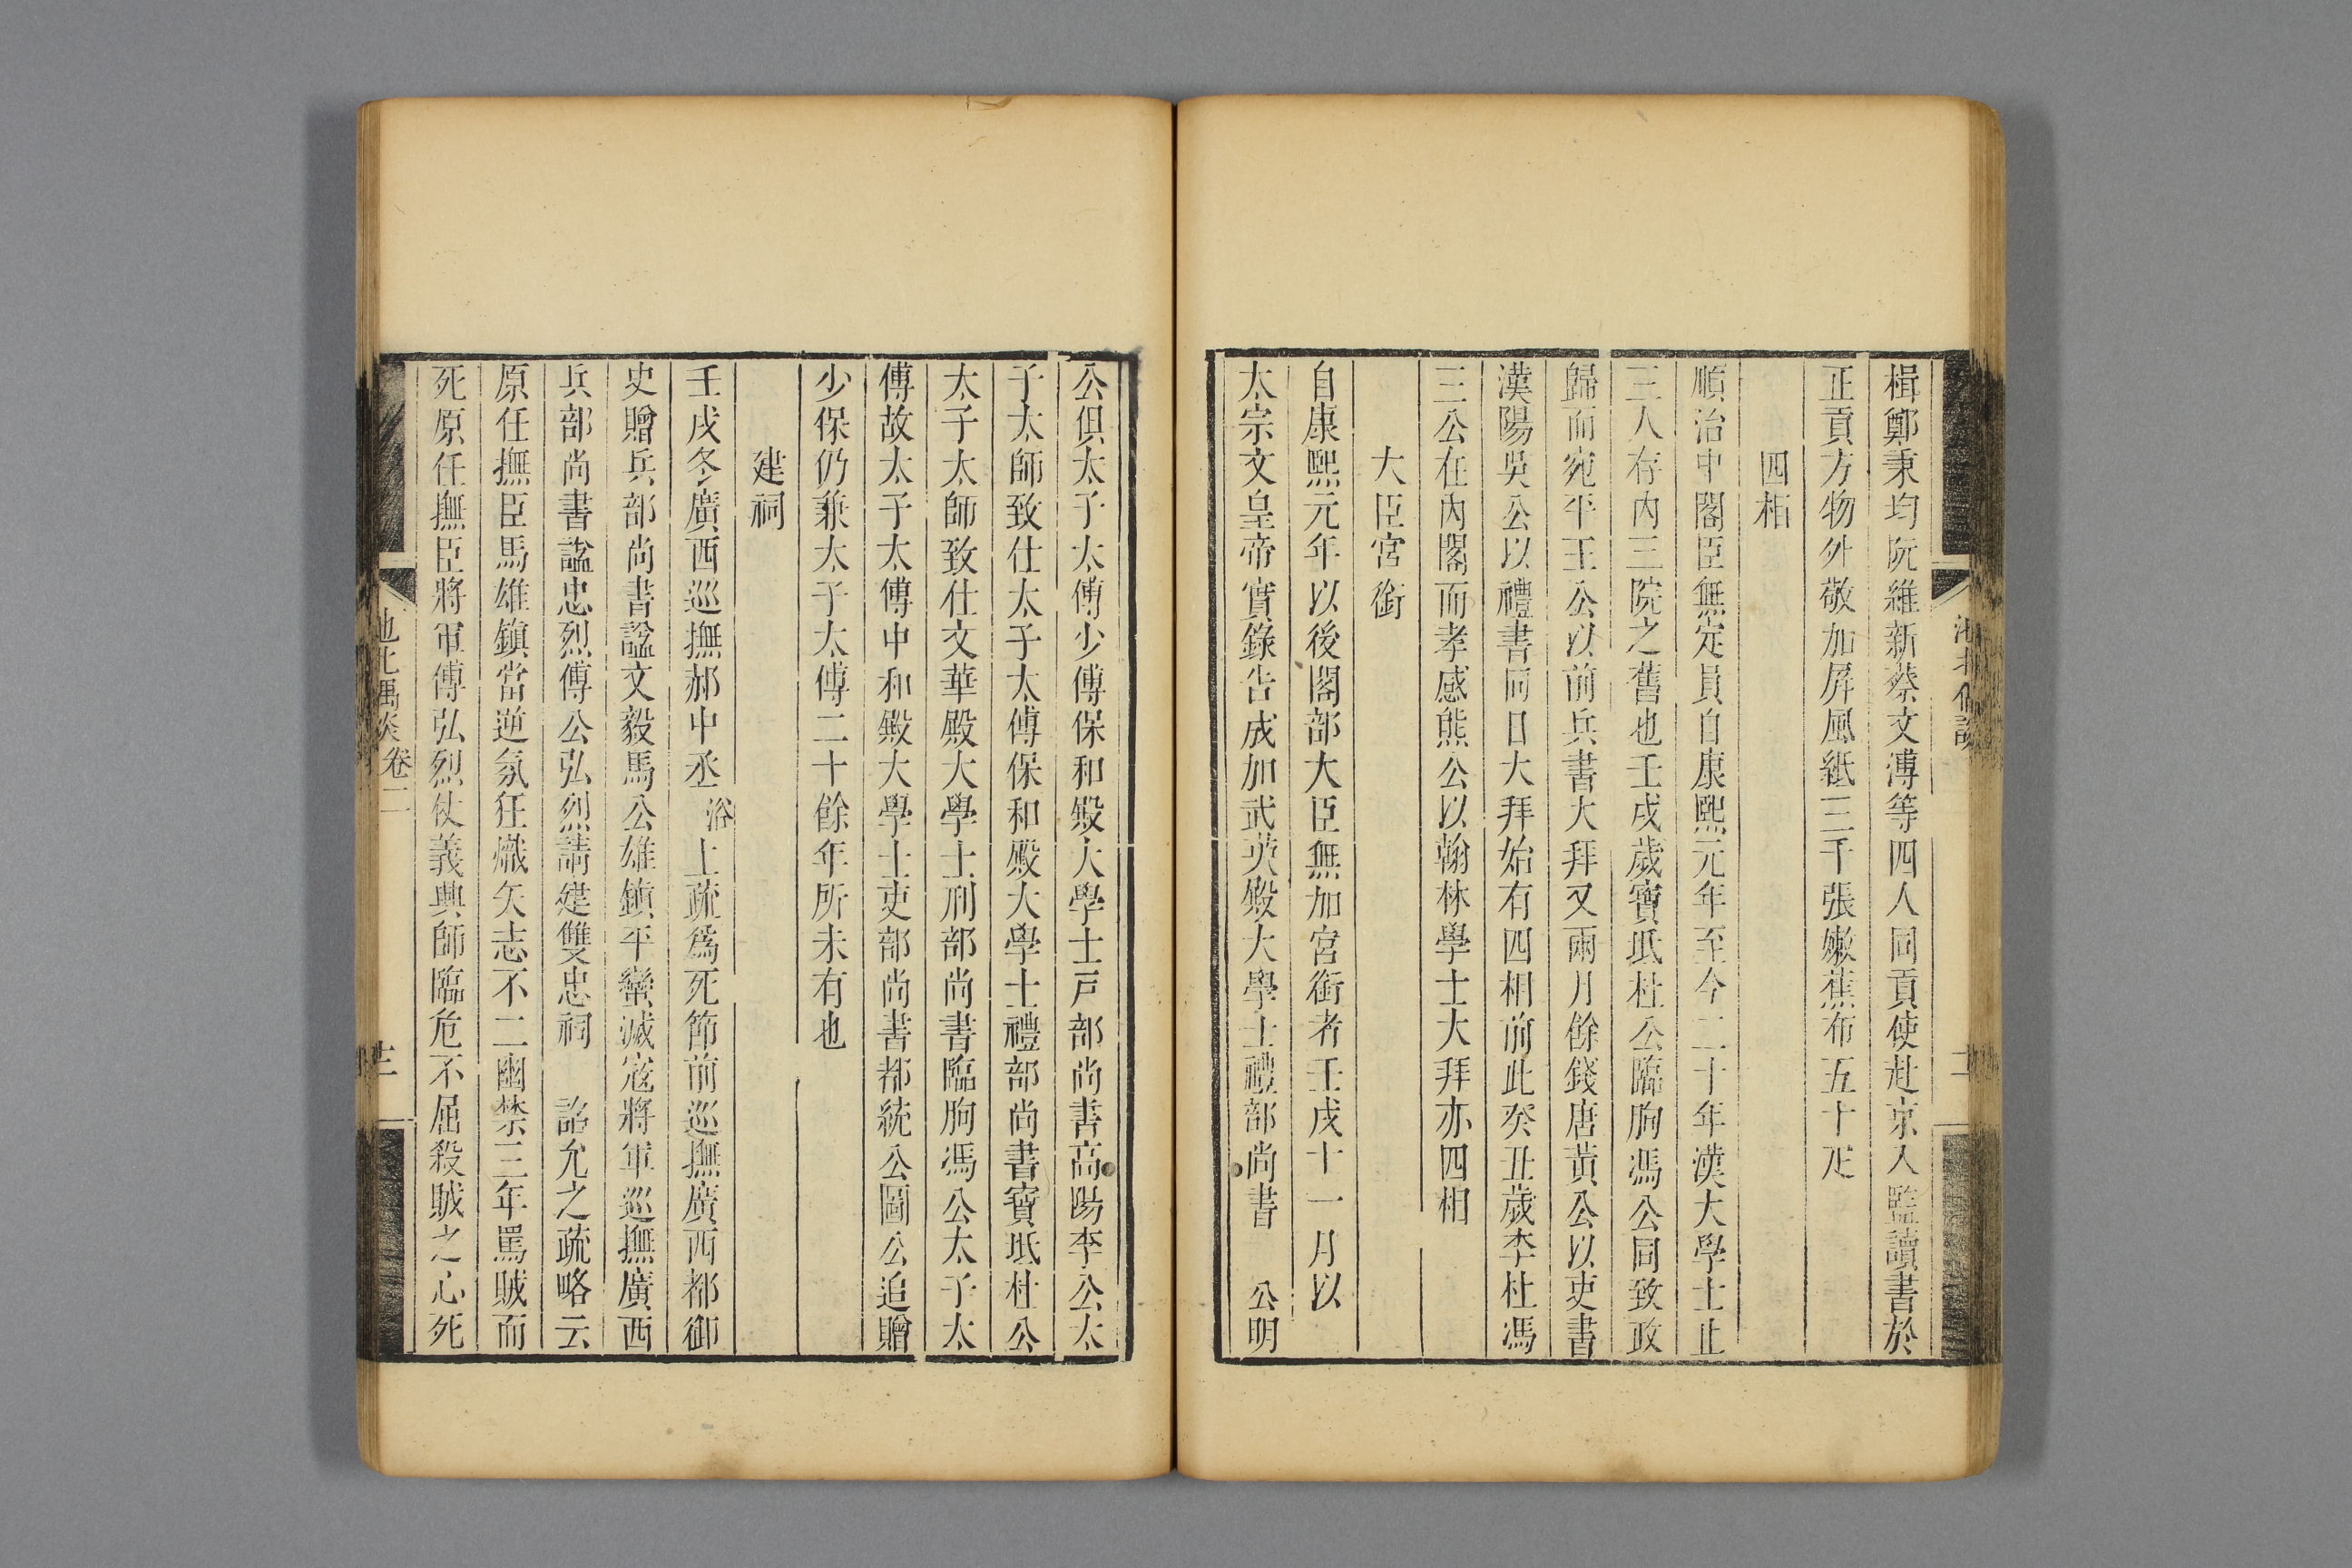 楫鄭秉均阮維新蔡文溥等四人同貢使赴京入監讀書於
正貢方物外敬加屏風紙三千張嫩蕉布五十疋
四相
順治中閣臣無定員自康熙元年至今二十年漢大學士止
三人存内三院之舊也壬戌歲寶坻杜公臨朐馮公同致政
歸而宛平王公以前兵書大拜又兩月餘錢唐黄公以吏書
漢陽吳公以禮書同日大拜始有四相前此癸丑歲李杜馮
三公在内閣而孝感熊公以翰林學士大拜亦四相
大臣宮銜
自康熙元年以後閣部大臣無加宮銜者壬戌十一月以
太宗文皇帝實錄告成加武英殿大學士禮部尚書 公明
公俱太子太傅少傅保和殿大學士戸部尚書高陽李公太
子太師致仕太子太傅保和殿大學士禮部尚書寶坻杜公
太子太師致仕文華殿大學士刑部尚書臨朐馮公太子太
傅故太子太傅中和殿大學士吏部尚書都統公圖公追贈
少保仍兼太子太傅二十餘年所未有也
建祠
壬戌冬廣西巡撫郝中丞浴上疏爲死節前巡撫廣西都御
史贈兵部尚書諡文毅馬公雄鎮平蠻滅寇將軍巡撫廣西
兵部尚書諡忠烈傅公弘烈請建雙忠祠 詔允之疏略云
原任撫臣馬雄鎮當逆氛狂熾矢志不二幽禁三年罵賊而
死原任撫臣將軍傅弘烈仗義興師臨危不屈殺賊之心死
池北偶談 卷二